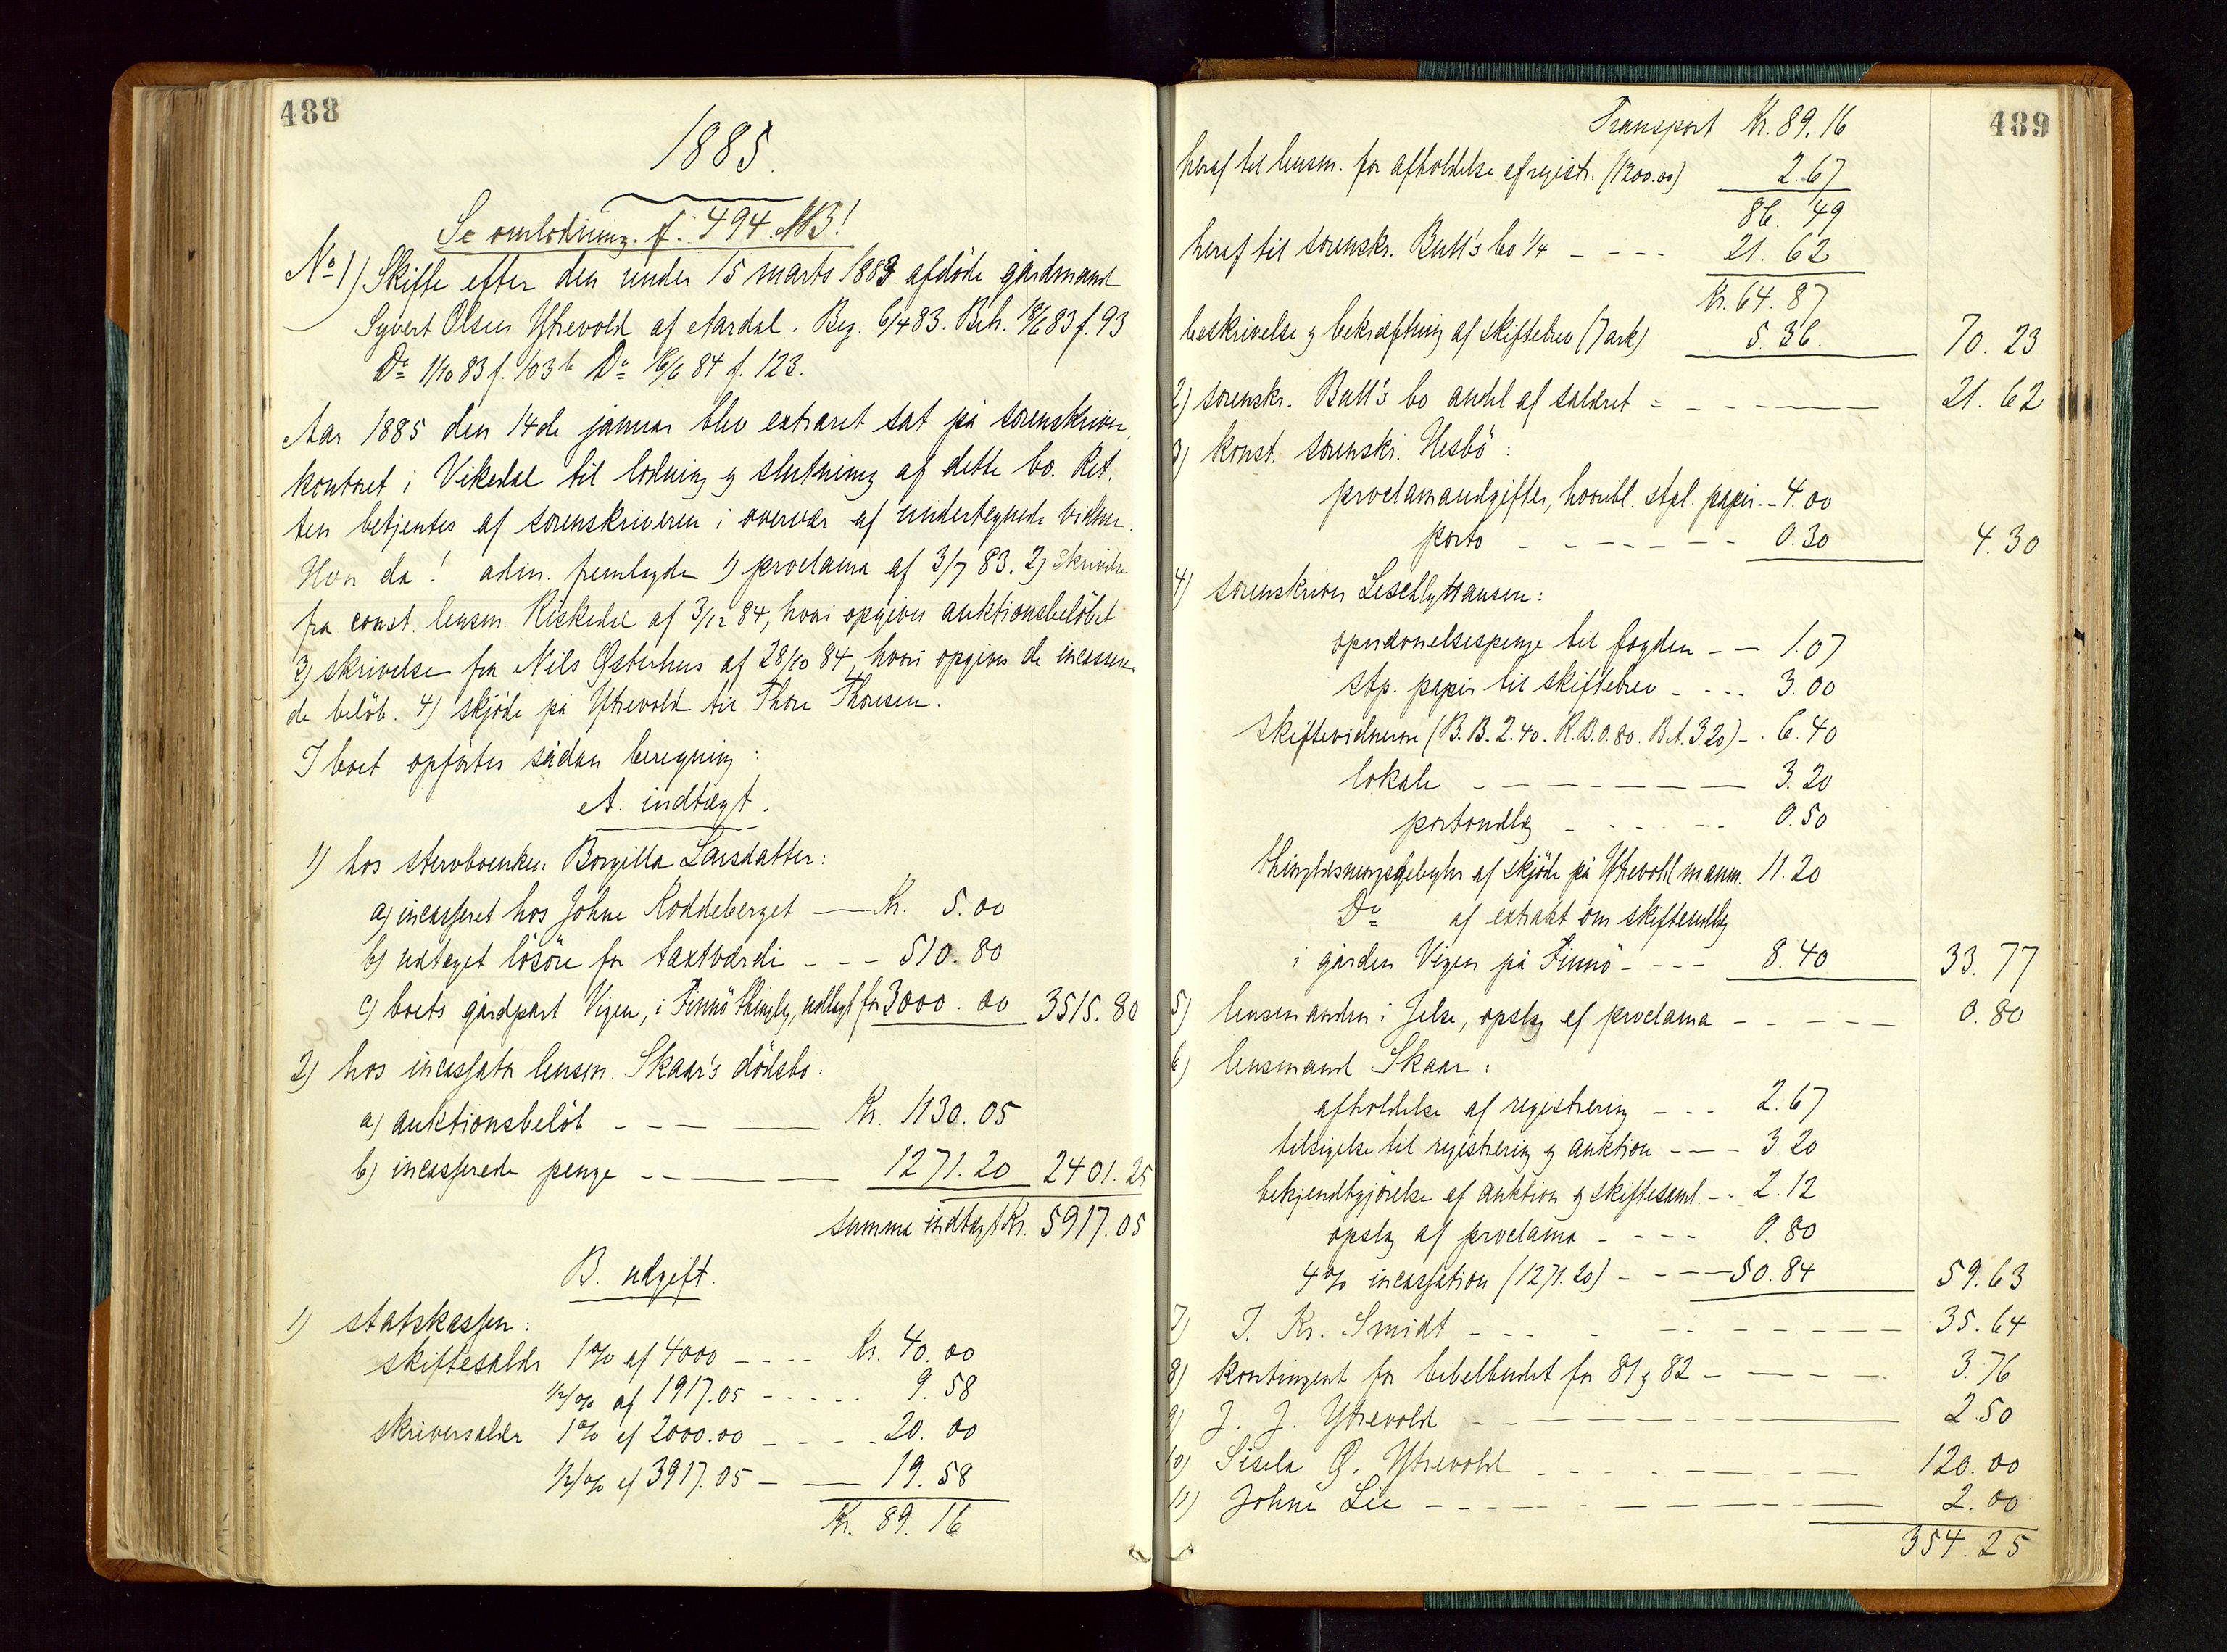 488
1885.
Se omlodning. f. 494. NB!
No 1) Skifte efter den under 15 marts 1883 afdöde gårdmand
Syvert Olsen Ytrevold af Aardal. Beg. 6/4 83. Beh. 18/6 83 f. 93
Do 1/10 83 f. 103b Do 16/6 84 f. 123.
Aar 1885 den 14de januar blev extraret sat på sorenskriver
kontoret i Vikedal til lodning og slutning af dette bo. Ret.
ten betjentes af sorenskriveren i overvær af undertegnede vidner.
Hvor da! adm. fremlagde 1) proclama af 3/7 83. 2) skrivelse
fra const. lensm. Riskedal af 3/12 84, hvori opgives auktionsbelöbet
3) skrivelse fra Nils Østerhus af 28/10 84, hvori opgives de incassere
de belöb. 4) skjöde på Ytrevold til Thore Thoresen.
I boet opförtes sådan beregning:
A. indtægt.
1) hos stervboenken Borgilla Larsdatter:
a) incasseret hos Johne Koddeberget — Kr. 5.00
b) udtaget lösöre for taxtværdi - - - 510.80
c) boets gårdpart Vigen, i Finnö thinglag, udlagt for 3000.00 3515.80
2) hos incassator lensm. Skaar's dödsbo:
a) auktionsbelöb - - - — Kr. 1130.05
b) incasserede penge - - — 1271.20 2401.25
summa indtægt Kr. 5917.05
B. udgift.
1) statskassen:
skiftesalär 1% af 4000 - - - - Kr. 40.00
1/2% af 1917.05 - - - - - 9.58
skriversalär 1% af 2000.00 - - - - 20.00
1/2% af 3917.05 - — 19.58
Kr. 89.16
489
Transport Kr. 89.16
heraf til lensm. for afholdelse af registr. (1200.00) 2.67
86.49
heraf til sorenskr. Bull's bo 1/4 - - - - 21.62
Kr. 64.87
beskrivelse og bekræftning af skiftebrev (7 ark) 5.36. 70.23
2) sorenskr. Bull's bo andel af salæret = - - - — 21.62
3) konst. sorenskr. Hesbö:
proclamaudgifter, hvoribl. stpl. papir. - 4.00
porto - - - - - - - 0.30 4.30
4) sorenskriver Leschly Hansen:
oppebörselspenge til fogden - - 1.07
stp. papir til skiftebrev - - - - 3.00
skiftevidnerne (B.B. 2.40. K.B. 0.80. B.A. 3.20) - . 6.40
lokale - - - - - - — 3.20
portoudlæg - - - - - - 0.50
thinglæsningsgebyhr af skjöde på Ytrevold m.m. 11.20
Do af extrakt om skifteudlæg
i gården Vigen på Finnö - - - - 8.40 33.77
5) lensmanden i Jelse, opslag af proclama - - - - - 0.80
6) lensmand Skaar:
afholdelse af registrering - - - 2.67
tilsigelse til registrering og auktion - - - - 3.20
bekjendtgjörelse af auktion og skiftesaml. - - 2.12
opslag af proclama - - - - 0.80
4% incassation (1271.20) - - - — 50.84 59.63
7) J. Kr. Smidt - - - - - - - - - - - 35.64
8) Kontingent for bibelbudet for 81 og 82 - - - - - 3.76
9) J. J. Ytrevold - - — 2.50
10) Sisela O. Ytrevold - - - - — 120.00
11) Johne Lie - - - - - — 2.00
354.25